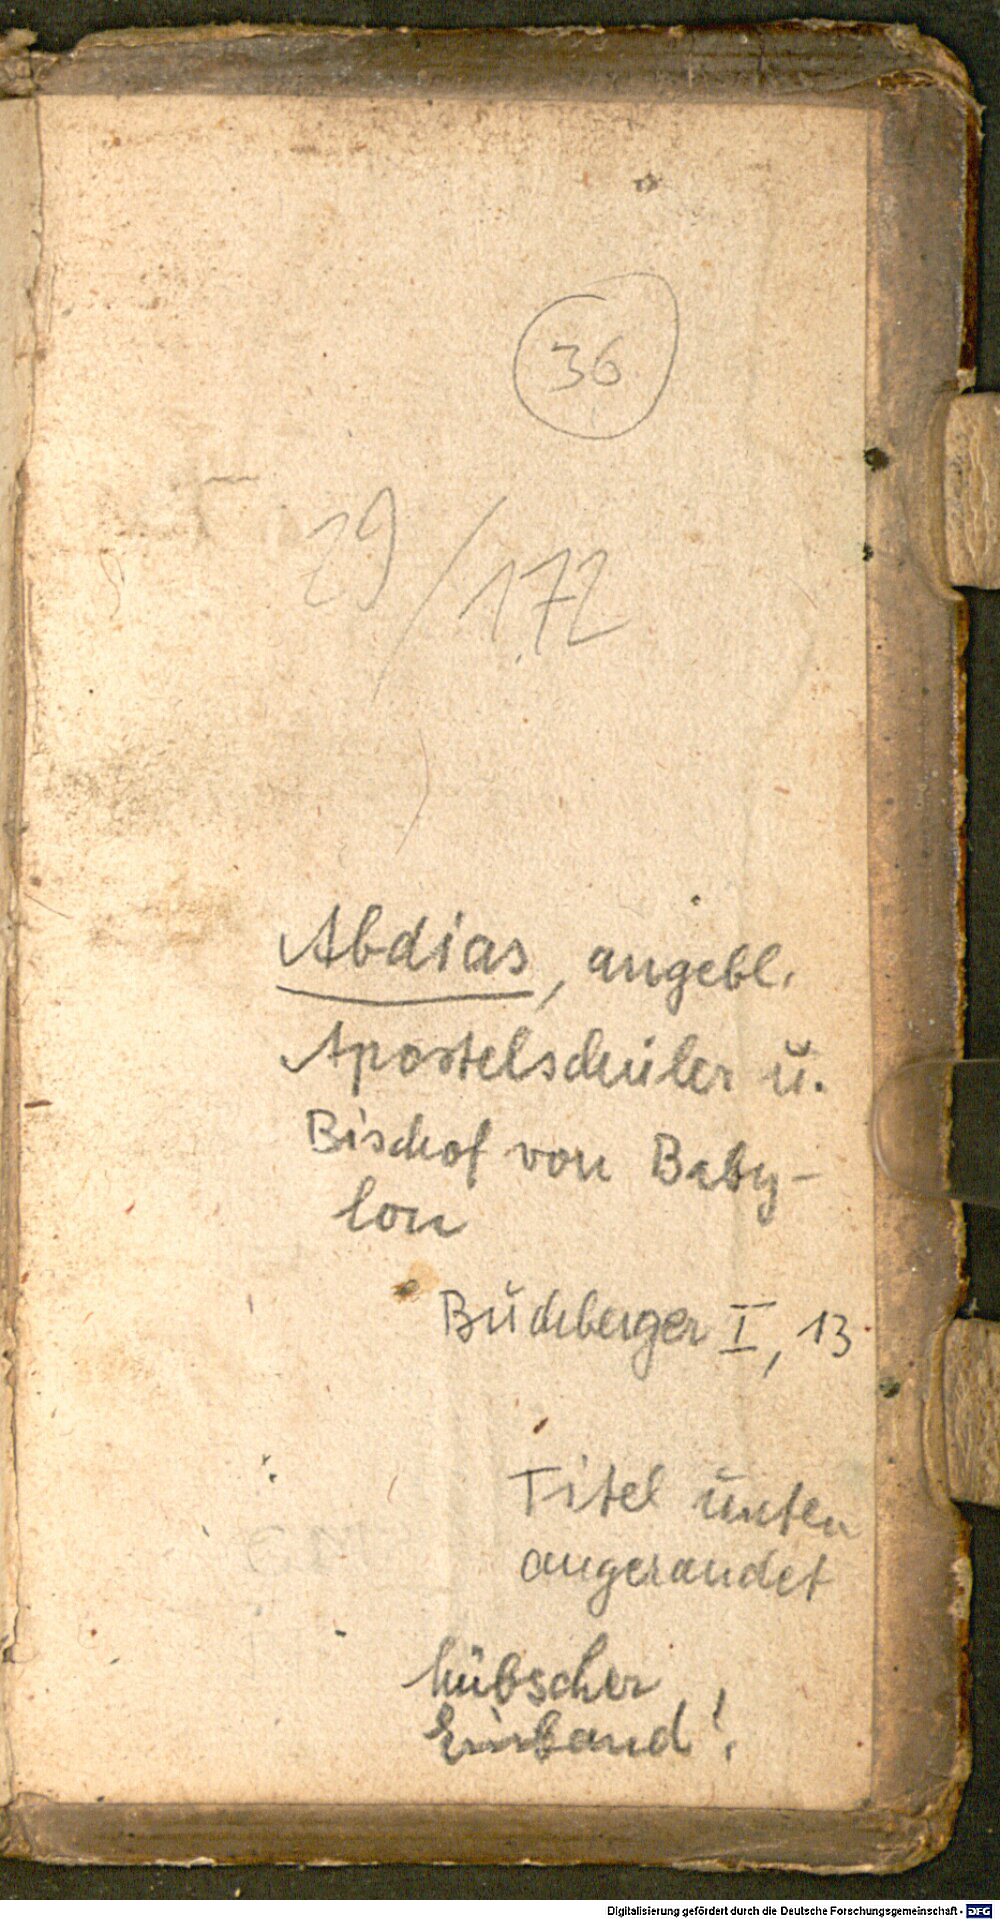 36
29/172
Abdias, angebl.
Apostelschüler u.
Bischof von Baby-
lon
Buchberger I, 13
Titel unten
angerandet
hübscher
Einband!
Digitalisierung gefördert durch die Deutsche Forschungsgemeinschaft - DFG